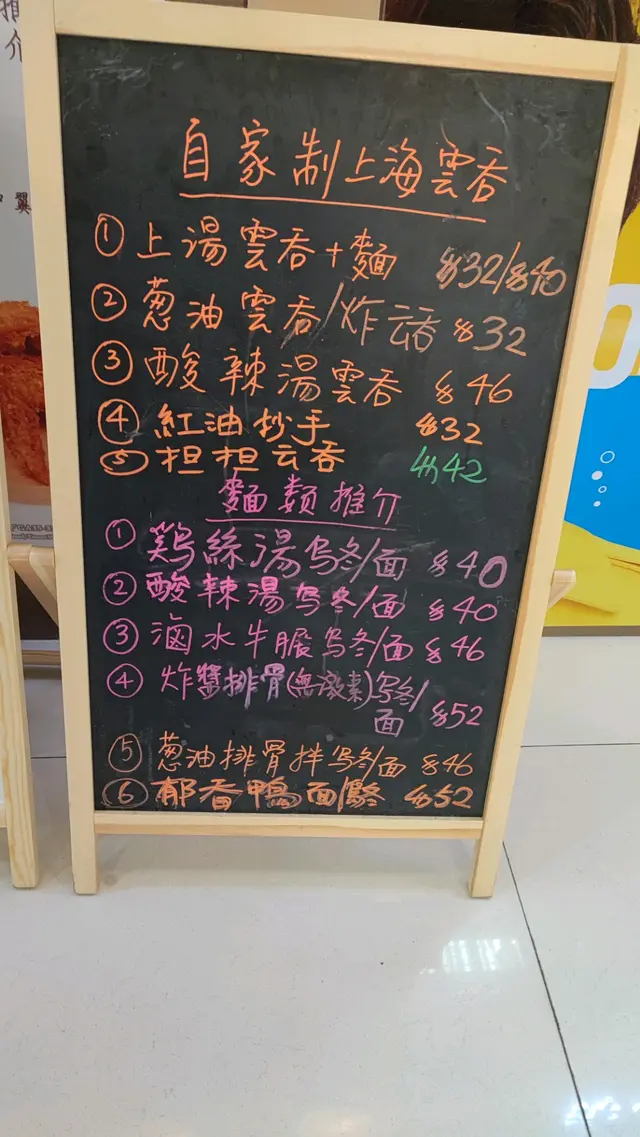 自家制上海雲吞
① 上湯雲吞+麵 $32/$40
② 葱油雲吞/炸云吞 $32
③ 酸辣湯雲吞 $46
④ 紅油抄手 $32
⑤ 担担云吞 $42
麵類推介
① 鷄絲湯乌冬/面 $40
② 酸辣湯乌冬/面 $40
③ 滷水牛腒乌冬/面 $46
④ 炸醬排骨(無激素)乌冬/
面 $52
⑤ 葱油排骨拌乌冬/面 $46
⑥ 郁香鴨面/ $52
推介
翼